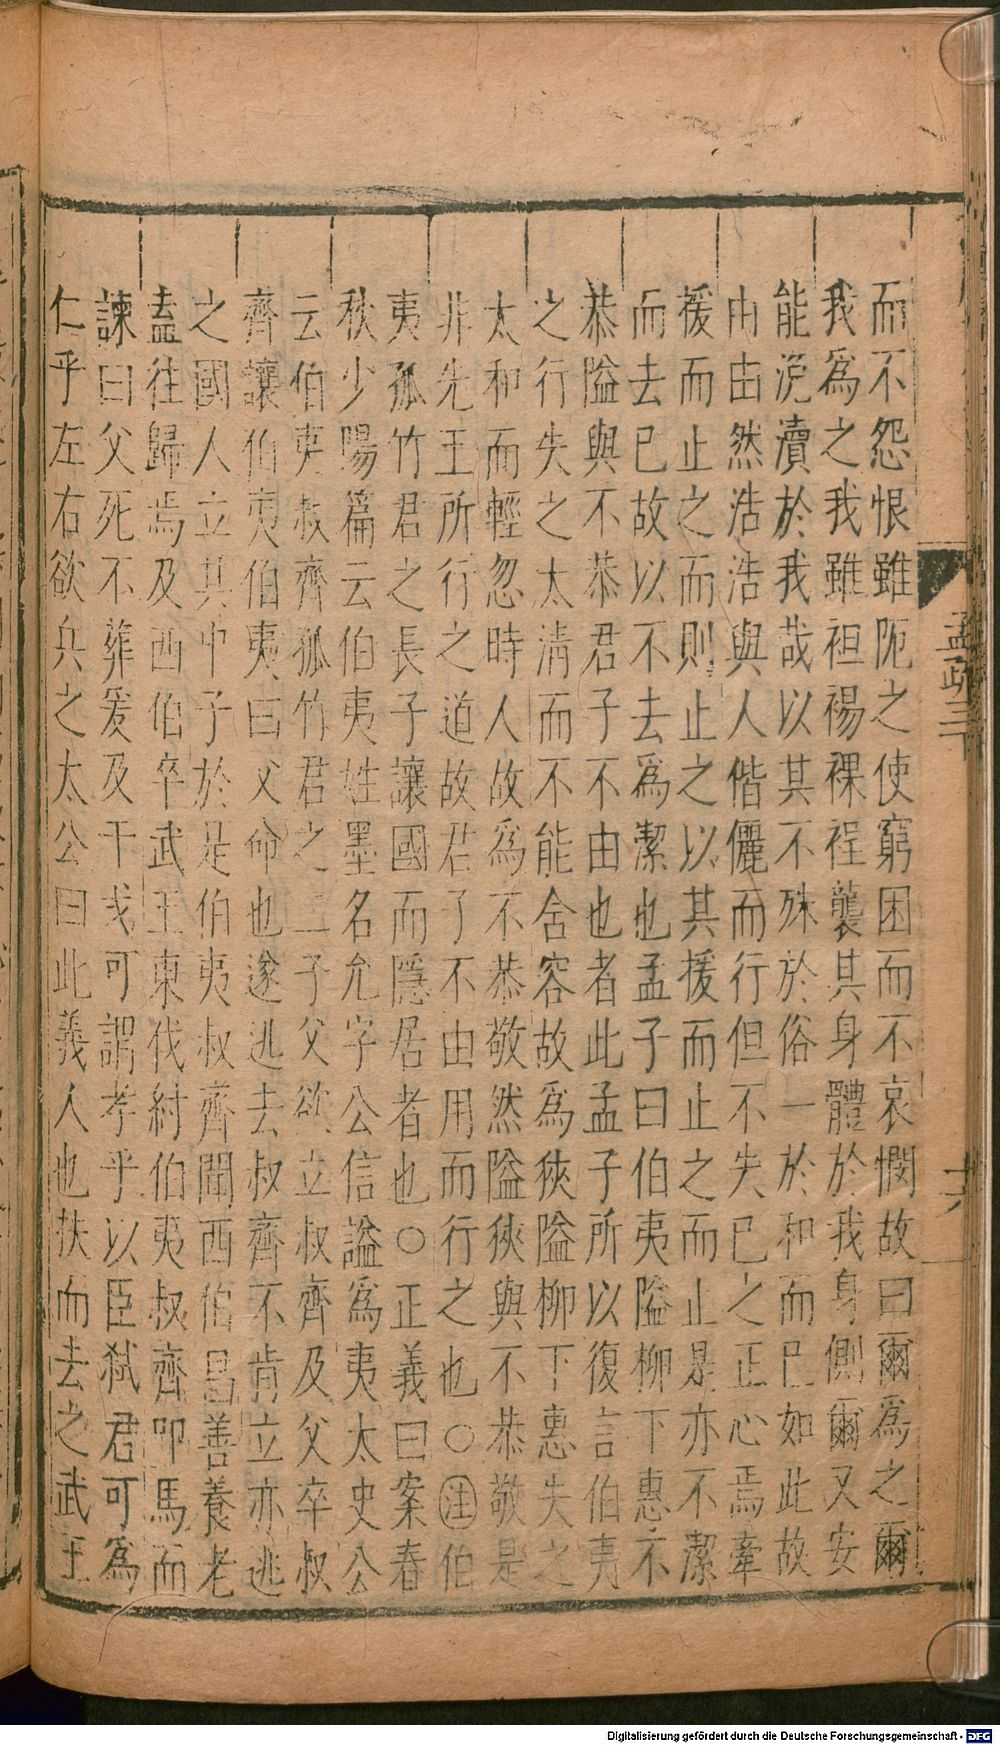 而不怨恨雖阨之使窮困而不哀憫故曰爾爲之爾
我爲之我雖袒裼裸裎襲其身體於我身側爾又安
能浼瀆於我哉以其不殊於俗一於和而已如此故
由由然浩浩與人偕儷而行但不失已之正心焉牽
援而止之而則止之以其援而止之而止是亦不潔
而去已故以不去爲潔也孟子曰伯夷隘柳下惠不
恭隘與不恭君子不由也者此孟子所以復言伯夷
之行失之太淸而不能舍容故爲狹隘柳下惠失之
太和而輕忽時人故爲不恭敬然隘狹與不恭敬是
非先王所行之道故君子不由用而行之也○注伯
夷孤竹君之長子讓國而隱居者也○正義曰案春
秋少陽篇云伯夷姓墨名允字公信謚爲夷太史公
云伯夷叔齊孤竹君之二子父欲立叔齊及父卒叔
齊讓伯夷伯夷曰父命也遂逃去叔齊不肯立亦逃
之國人立其中子於是伯夷叔齊聞西伯昌善養老
盍往歸焉及西伯卒武王東伐紂伯夷叔齊叩馬而
諫曰父死不葬爰及干戈可謂孝乎以臣弑君可爲
仁乎左右欲兵之太公曰此義人也扶而去之武王
孟疏三下
十六
Digitalisierung gefördert durch die Deutsche Forschungsgemeinschaft - DFG